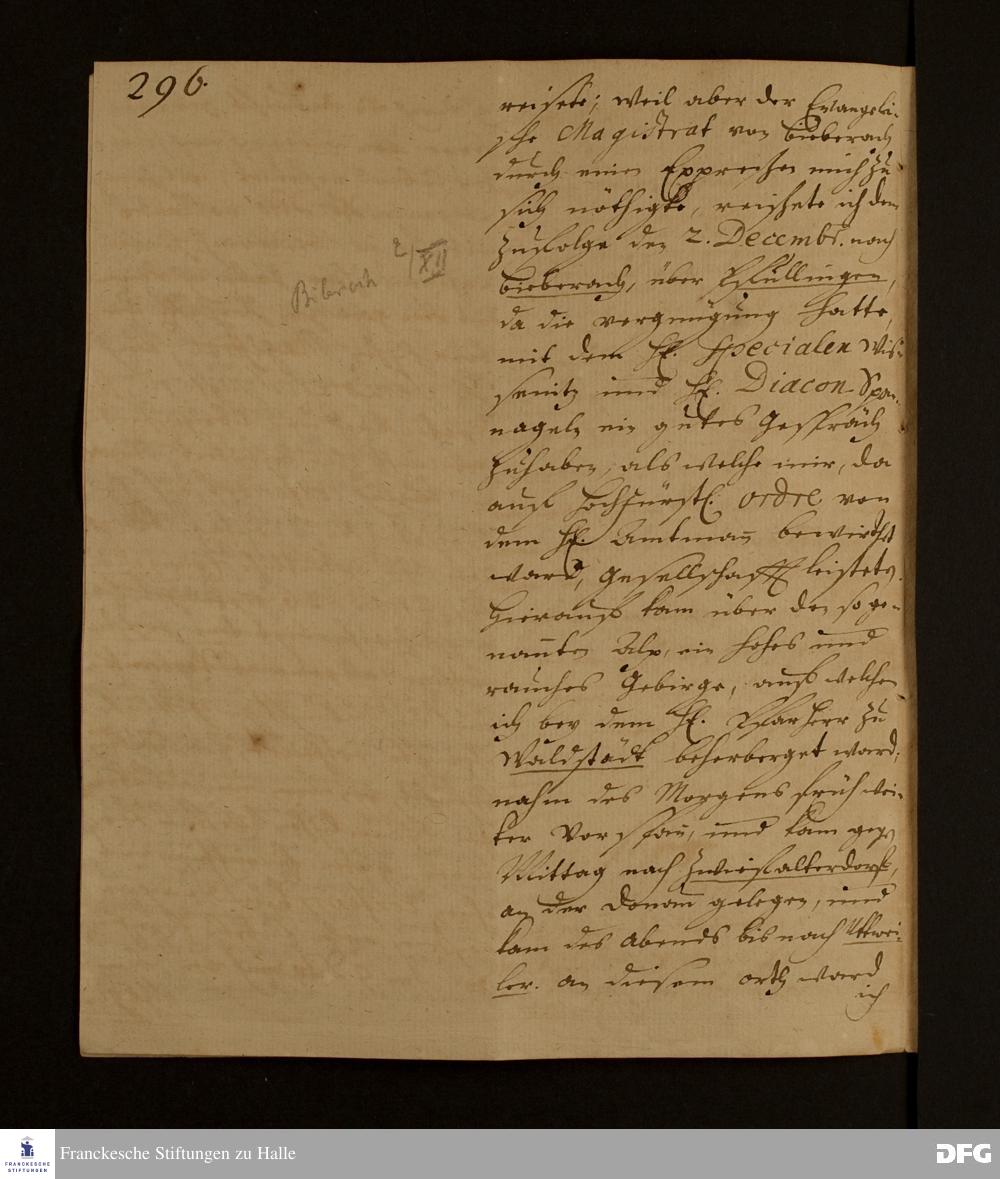 296.
reisete; weil aber der Evangeli-
sche Magistrat von bieberach
durch einen Expressen mich zu
sich nöthigte, reisete ich dem
zufolge den 2. Decembr. nach
bieberach, über Pfullingen,
Biberach 2/XII
da die vergnügung hatte,
mit dem H. Specialen
und H. Diacon Span-
nageln ein gutes Gespräch
zuhaben, als welche mir, da
auf hochfürstl. ordre von
dem H. Amtmann bewirthet
ward, Gesellschafft leisteten.
Hierauf kam über den so ge-
nannten Alp, ein hohes und
rauhes Gebirge, auf welchen
ich bey dem H. Pfarherr zu
Waldstädt beherberget ward,
nahm des Morgens früh wei-
ter Vorspan, und kam gegen
Mittag nach Zwiefalterdorf,
an der Donau gelegen, und
kam des abends bis nach Uttwei-
ler. an diesem orth ward
ich
Franckesche Stiftungen zu Halle
FRANCKESCHE
STIFTUNGEN
DFG